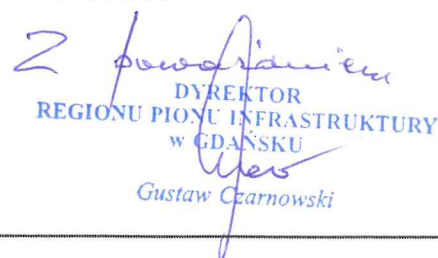 Z poważaniem
DYREKTOR
REGIONU PIONU INFRASTRUKTURY
w GDAŃSKU
Gustaw Czarnowski